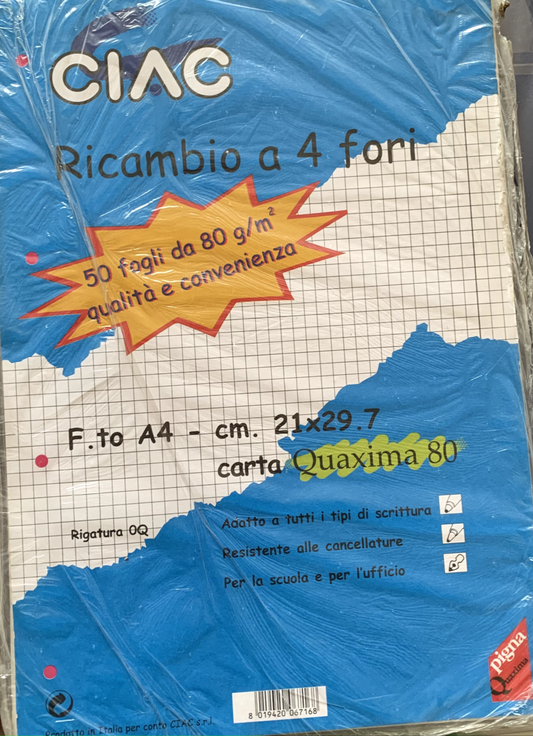 CIAC
Ricambio a 4 fori
50 fogli da 80 g/m²
qualità e convenienza
F.to A4 - cm. 21x29.7
carta Quaxima 80
Rigatura 0Q
Adatto a tutti i tipi di scrittura
Resistente alle cancellature
Per la scuola e per l'ufficio
pigna
Quaxima
8 019420 067168
Prodotto in Italia per conto CIAC s.r.l.